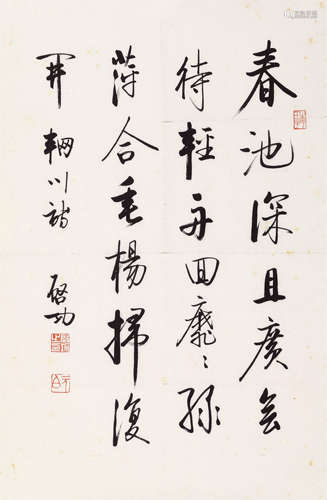 春池深且廣会
待輕舟回靡〻綠
萍合垂楊掃復
開 輞川詩
啓功